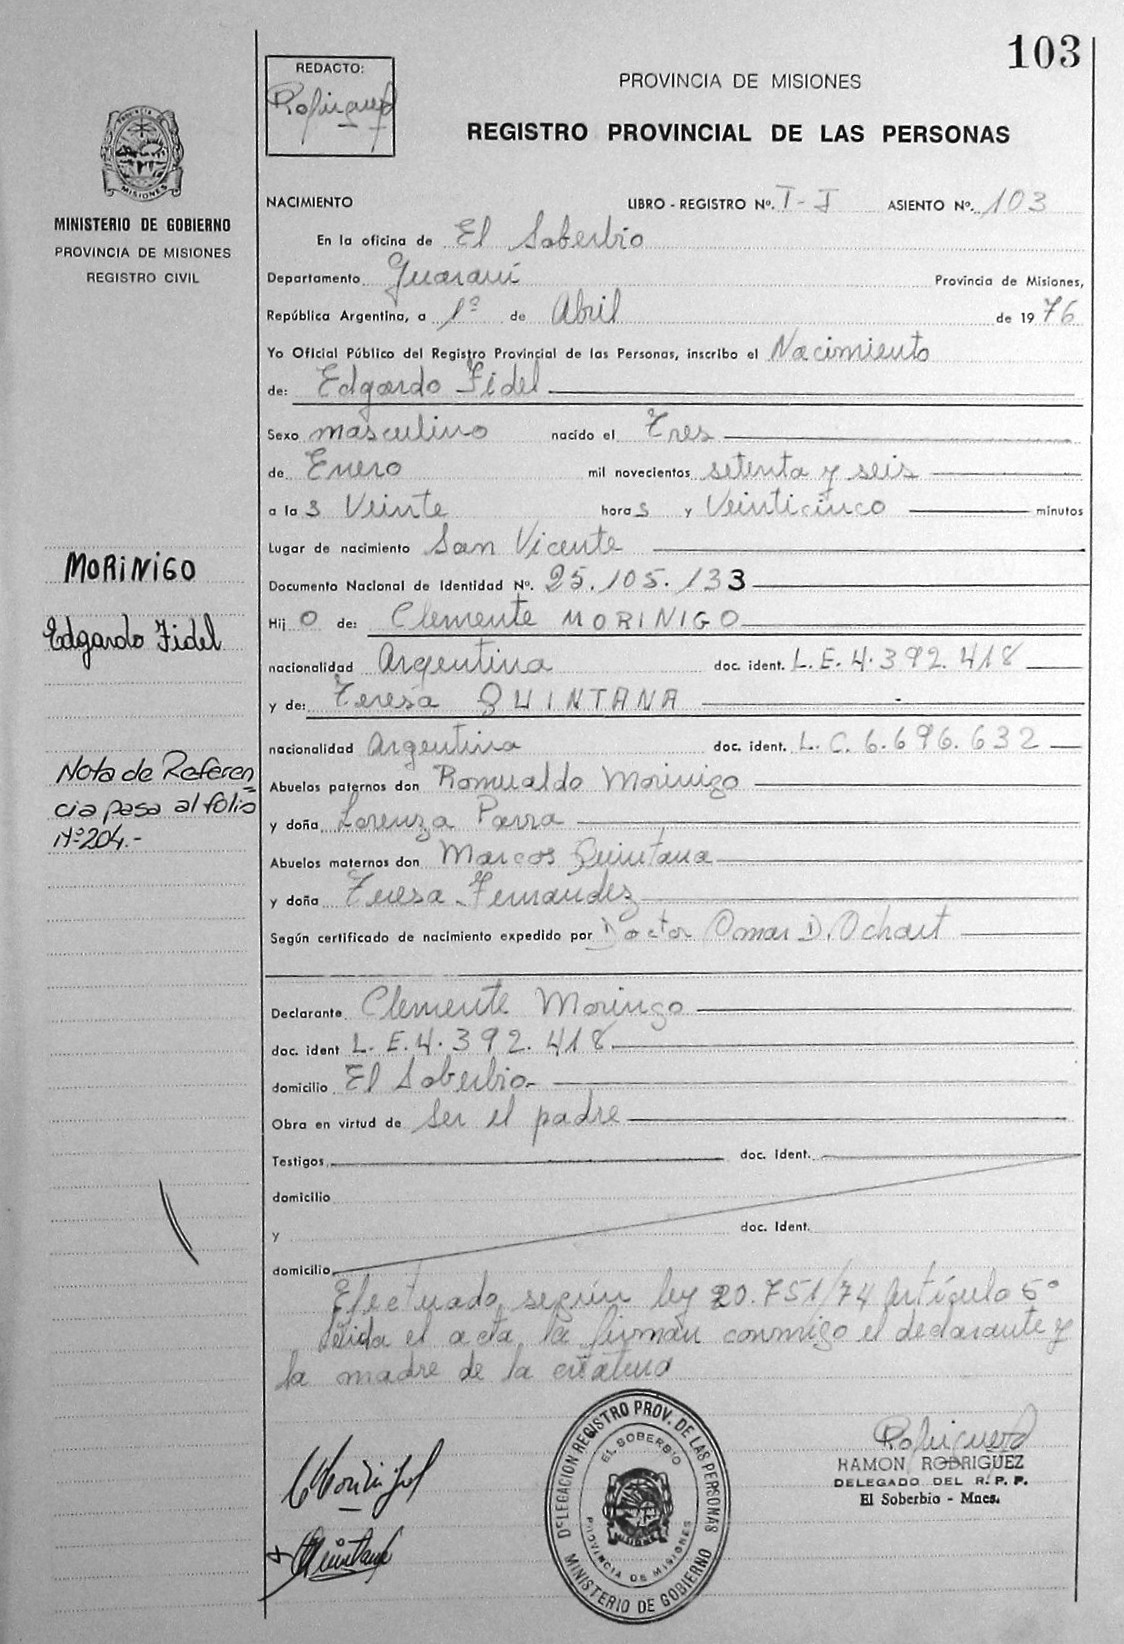 103
REDACTO:
PROVINCIA DE MISIONES
REGISTRO PROVINCIAL DE LAS PERSONAS
PROVINCIA DE
MISIONES
MINISTERIO DE GOBIERNO
PROVINCIA DE MISIONES
REGISTRO CIVIL
NACIMIENTO LIBRO - REGISTRO Nº. I-I ASIENTO Nº. 103
En la oficina de El Soberbio
Departamento Guaraní Provincia de Misiones,
República Argentina, a 1º de Abril de 1976
Yo Oficial Público del Registro Provincial de las Personas, inscribo el Nacimiento
de: Edgardo Fidel
Sexo masculino nacido el Tres
de Enero mil novecientos setenta y seis
a las Veinte horas y Veinticinco minutos
Lugar de nacimiento San Vicente
MORINIGO
Documento Nacional de Identidad Nº. 25.105.133
Hijo de: Clemente MORINIGO
Edgardo Fidel
nacionalidad Argentina doc. ident. L.E. 4.392.418
y de: Teresa QUINTANA
nacionalidad Argentina doc. ident. L.C. 6.696.632
Nota de Referen
cia pasa al folio
Nº 204.-
Abuelos paternos don Romualdo Morinigo
y doña Lorenza Parra
Abuelos maternos don Marcos Quintana
y doña Teresa Fernandez
Según certificado de nacimiento expedido por Doctor Omar D. Ochart
Declarante Clemente Moringo
doc. ident L. E. 4.392.418
domicilio El Soberbio-
Obra en virtud de ser el padre
Testigos doc. Ident.
domicilio
y doc. Ident.
domicilio
Efectuado según ley 20.751/74 Artículo 5º
Leida el acta la firman conmigo el declarante y
la madre de la criatura
DELEGACION REGISTRO PROV. DE LAS PERSONAS
EL SOBERBIO
PROVINCIA DE MISIONES
MINISTERIO DE GOBIERNO
RAMON RODRIGUEZ
DELEGADO DEL R. P. P.
El Soberbio - Mnes.
Quintana